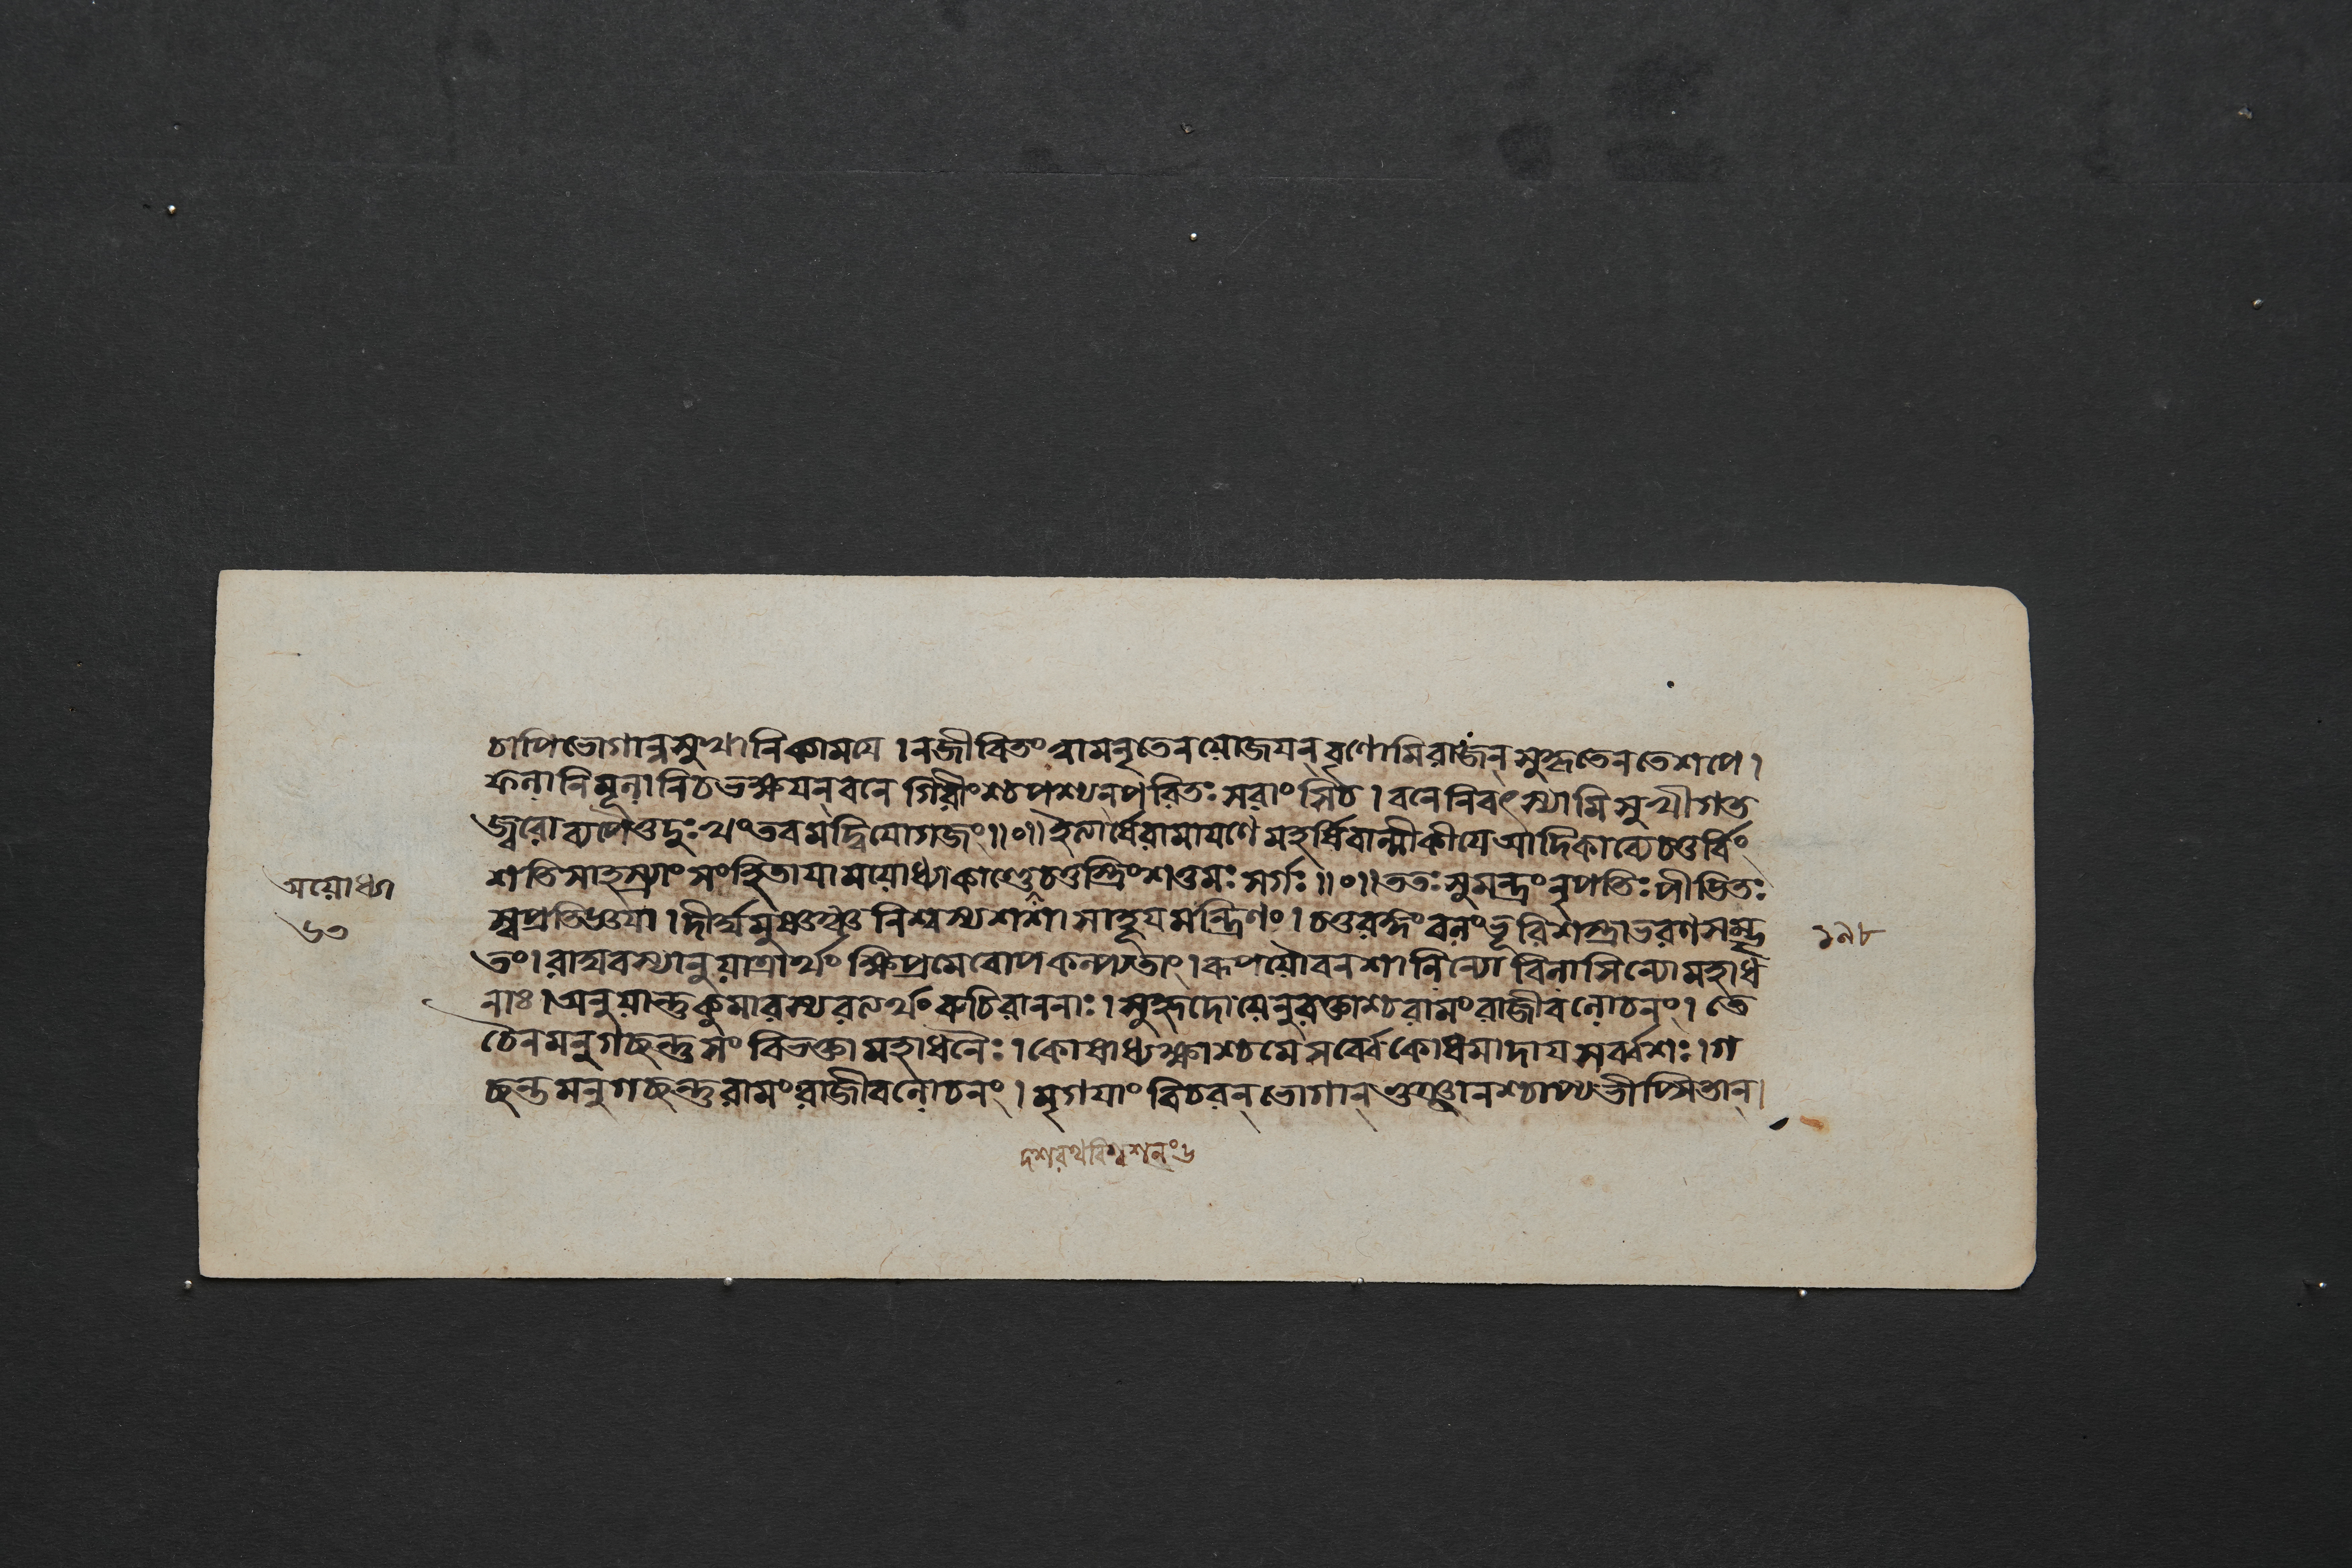 চাপিভোগান্নসুখানিকাময়ে । নজীবিতং রামনৃতেনয়োজয়ন্ বৃণোমিরাজন্ সুহৃতেনতেশপে ।
ফলানিমূলানিচভক্ষয়ন্ বনে গিরীংশ্চপশ্যনপরিতঃ সরাংসিচ । বনেনিবৎস্যামিসুখীগত
জ্বরোব্যপৈতুদুঃখংতবমদ্বিযোগজং ॥ ० ॥ ইত্যার্ষেরামায়ণে মহর্ষিবাল্মীকীয়েআদিকাব্যেচতুর্বিং
শতিসাহস্র্যাং সংহিতায়াময়োধ্যাকাণ্ডে চতুস্ত্রিংশত্তমঃ সর্গঃ ॥ ० ॥ ততঃ সুমন্ত্রং নৃপতিঃ পীড়িতঃ
স্বপ্রতিজ্ঞয়া । দীর্ঘমুষ্ণঞ্চ নিশ্বস্য শশাসাহূয়মন্ত্রিণং । চতুরঙ্গং বলংভূরিশস্ত্রাভরণসম্ভৃ
তং । রাঘবস্যানুয়াত্রার্থং ক্ষিপ্রমেবোপকল্প্যতাং । রূপয়ৌবনশালিন্যো বিলাসিন্যোমহাধ
নাঃ । অনুয়ান্তুকুমারস্যরত্যর্থং রুচিরাননাঃ । সুহৃদোয়েনুরক্তাশ্চরামং রাজীবলোচনং । তে
চৈনমনুগচ্ছন্তুসং বিভক্তামহাধনৈঃ । কোষাধ্যক্ষাশ্চমেসর্ব্বেকোষমাদায়সর্ব্বশঃ । গ
চ্ছন্তমনুগচ্ছন্তুরামং রাজীবলোচনং । মৃগয়াং বিচরন্ ভোগান্ ভুঞ্জানশ্চাপ্যভীপ্সিতান্।
অয়োধ্যা
৬৩
১৯৮